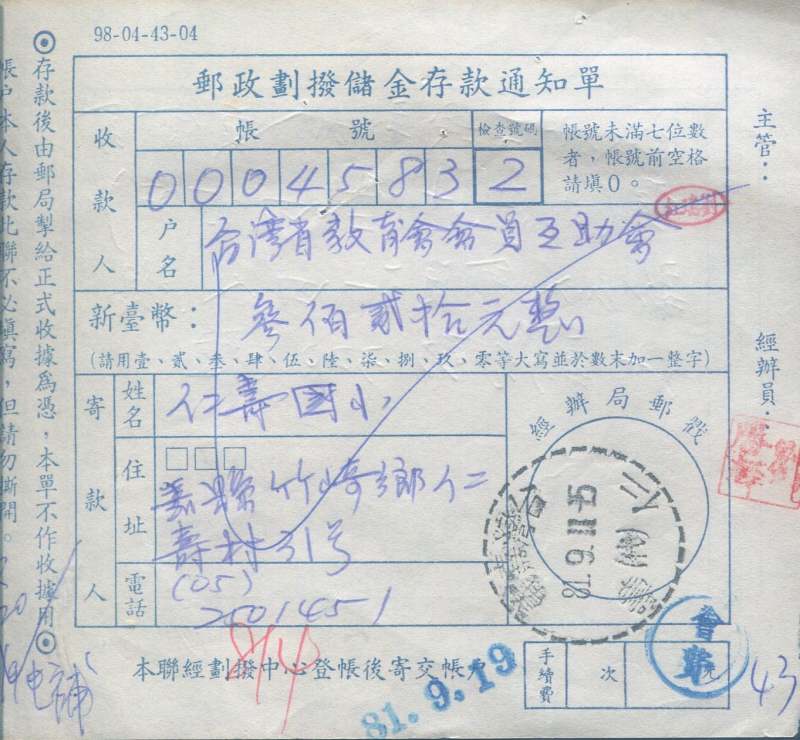 98-04-43-04
◎存款後由郵局掣給正式收據為憑，本單不作收據用◎
帳戶本人存款此聯不必填寫，但請勿撕開。
郵政劃撥儲金存款通知單
主管：
收款人
帳號
檢查號碼
帳號未滿七位數
者，帳號前空格
請填0。
0004583 2
戶名
台灣省教育會會員互助會
新臺幣：
叁佰貳拾元整
(請用壹、貳、叁、肆、伍、陸、柒、捌、玖、零等大寫並於數末加一整字)
經辦員：
寄款人
姓名
仁壽國小
經辦局郵戳
住址
嘉縣竹崎鄉仁
壽村31号
81.9.
電話
(05)
2501451
本聯經劃撥中心登帳後寄交帳戶
814
81.9.19
手續費
次
元
43